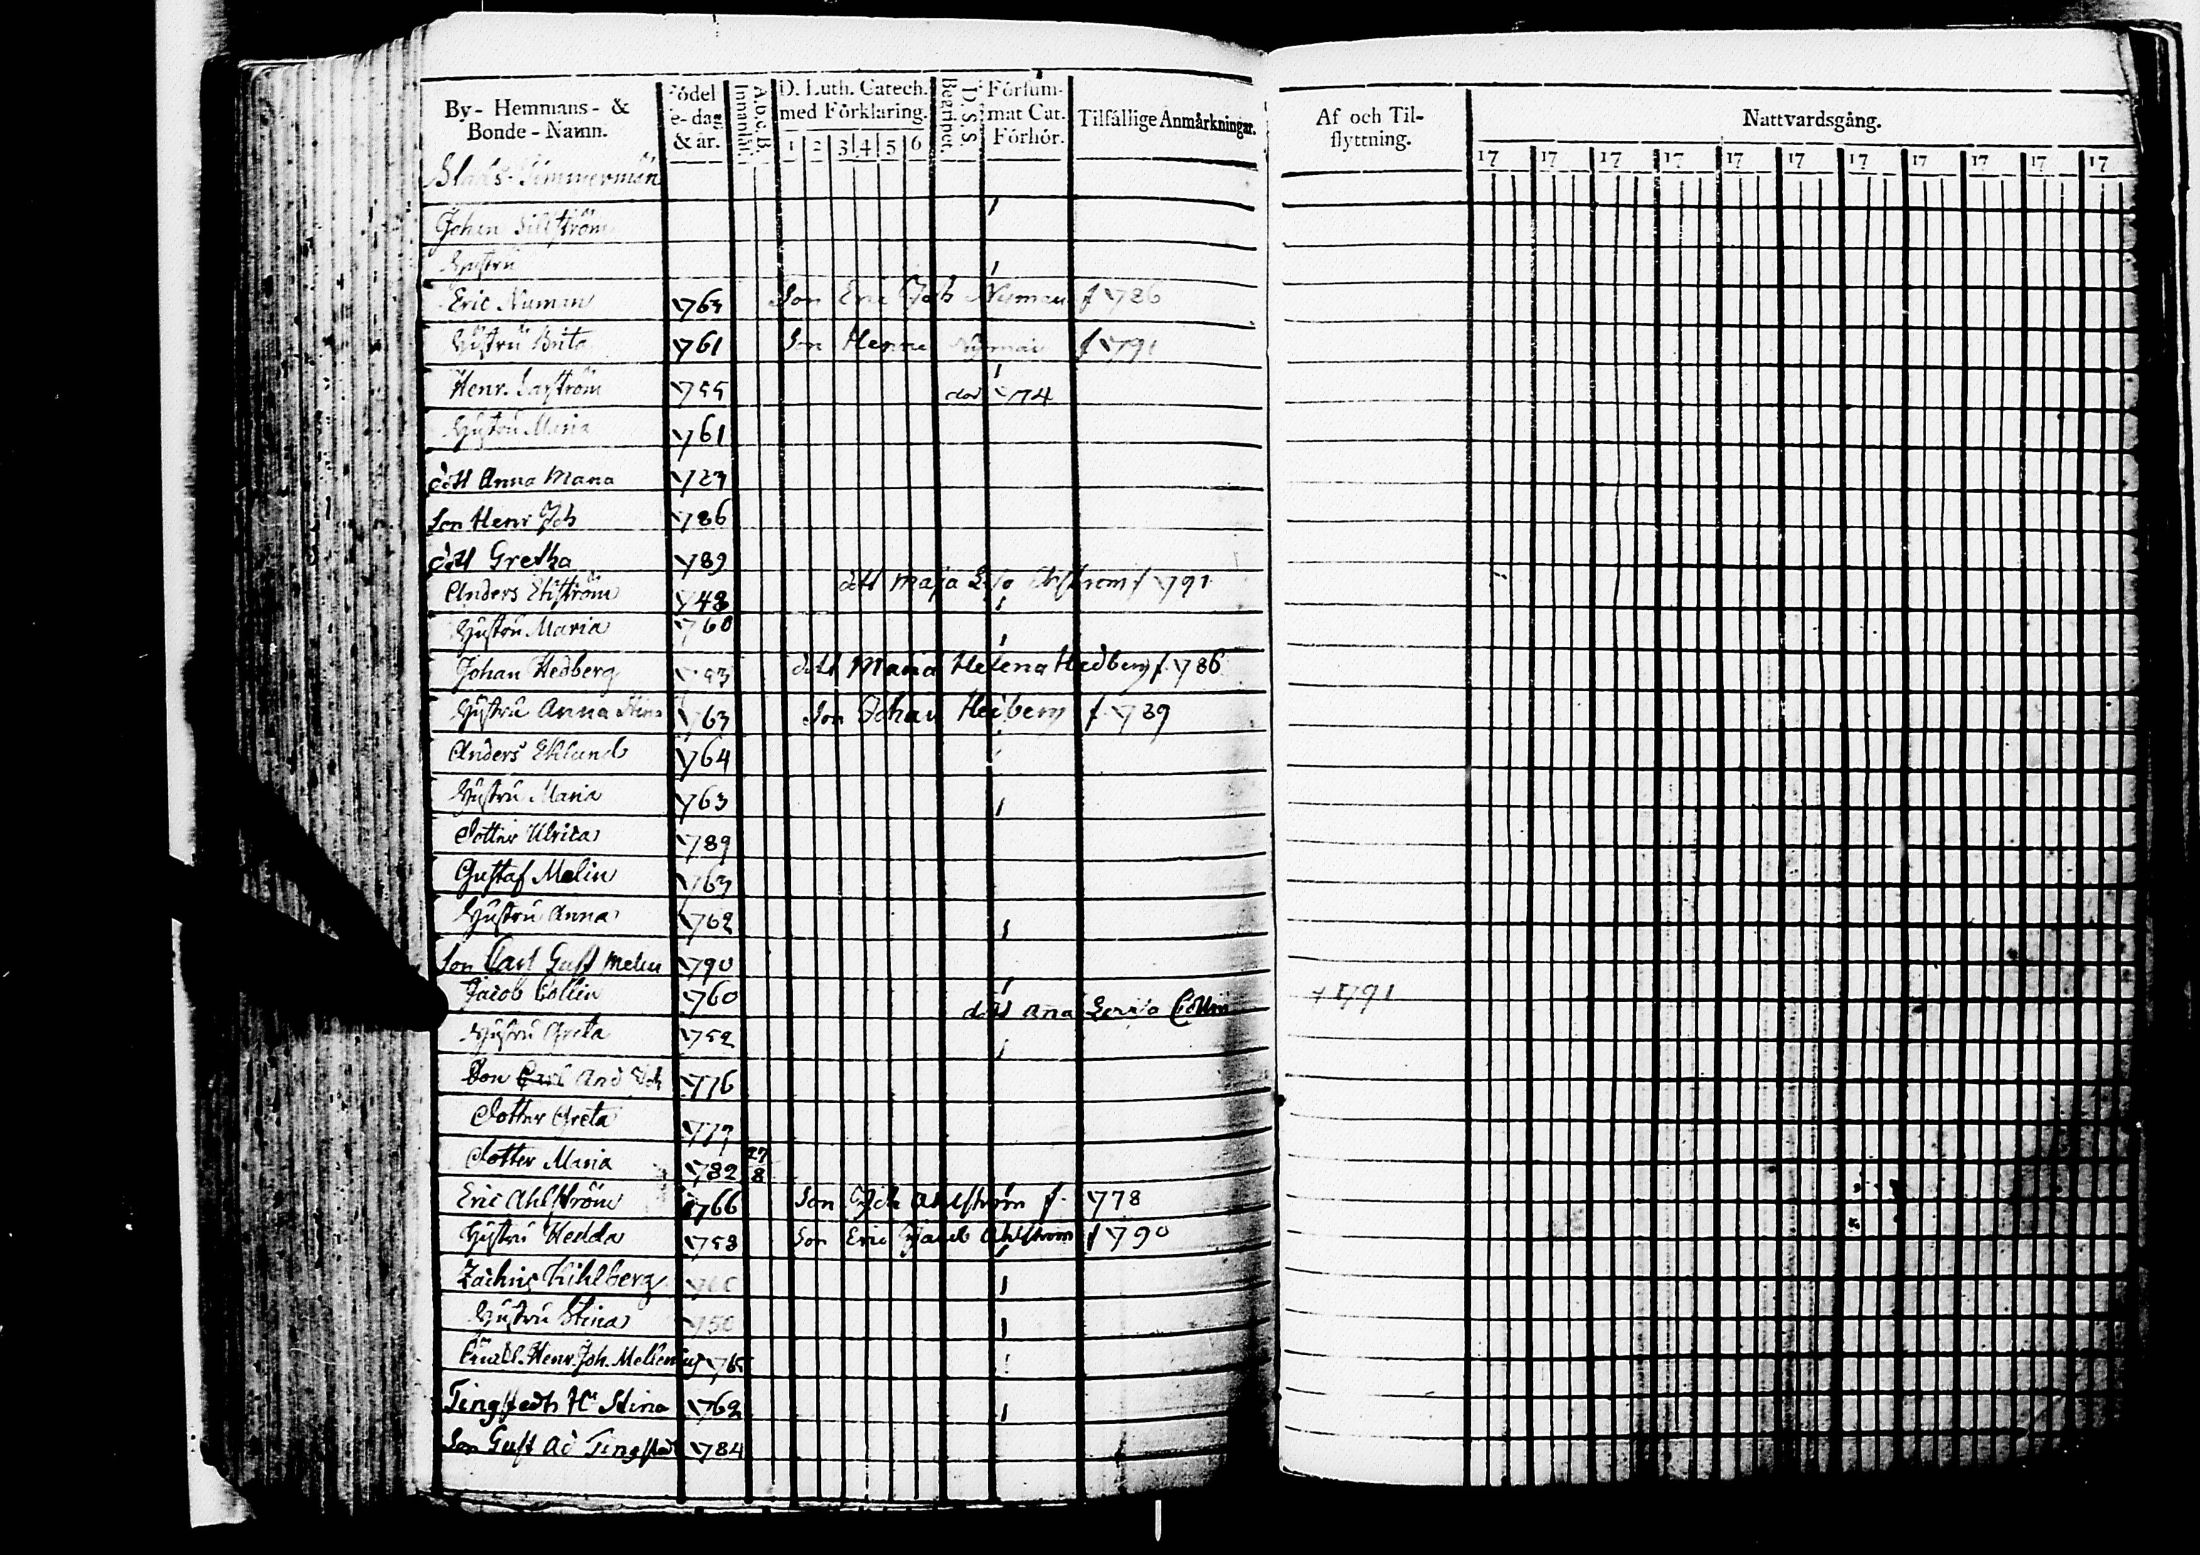 By- Hemmans- & Bonde-Namn. Födel e-dag & år. A.b.c.B. Innanläs. D. Luth. Catech. med Förklaring. 1 2 3 4 5 6 Begripet. D.S.S. Försum- mat Cat. Förhör. Tilfällige Anmärkningar. Af och Til- flyttning. Nattvardsgång.
17 17 17 17 17 17 17 17 17 17 17
Slads-Timmermän
Johan
Hustru
Eric Numan 1763 Son Eric Joh Nyman f 1786
Hustru Brita 1761 Son Henric Nyman f 1791
Henr. 1755 död 1774
Hustru Maria 1761
dott Anna Maria
Son Henr Joh 1786
dott Gretha 1789
dott Maja f 1791
Anders 1748
Hustru Maria 1760
Johan Hedberg dott Maria Helena Hedberg f. 1786
Hustru Anna Stina 1763 Son Johan Hedberg f. 1789
Anders Eklund 1764
Hustru Maria 1763
Dotter Ulrica 1789
Gustaf Melin 1763
Hustru Anna 1762
Son Carl Gust Melin 1790
Jacob Collin 1760 dott Ana Collin f 1791
Hustru Greta 1752
Son Carl And Joh 1776
Dotter Greta 1777
Dotter Maria 1782 27 8
Eric Ahlström 1766 Son Joh Ahlström f. 1778
Hustru Hedda 1758 Son Eric Jacob Ahlström f 1790
Kihlberg
Hustru Stina 1750
Henr. Joh. 1765
Tingstedts H. Stina 1762
Son Gust Ad Tingsted 1784